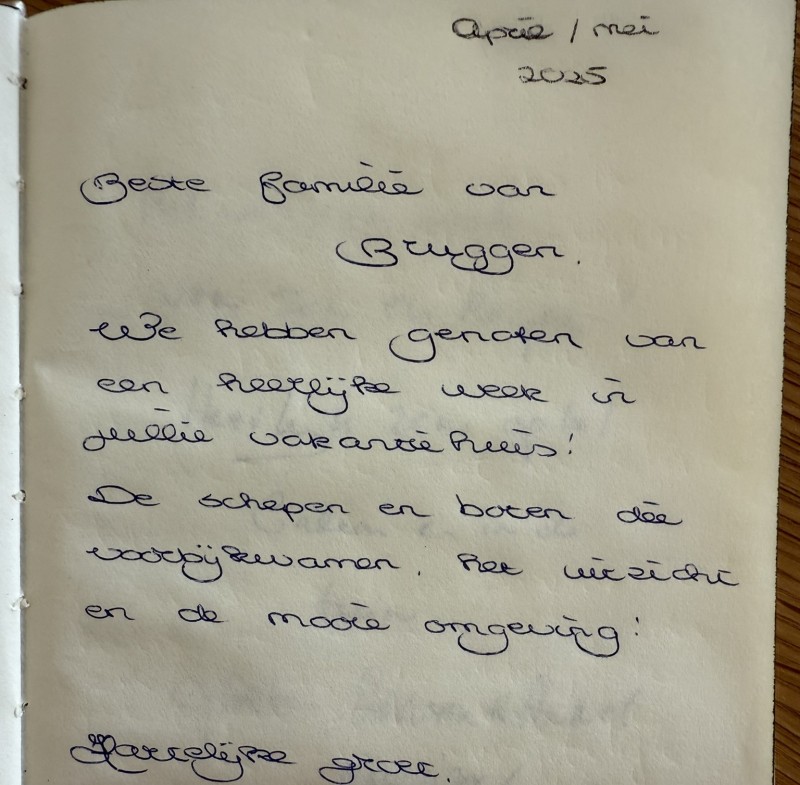 April / mei
2025
Beste familie van
Bruggen.
We hebben genoten van
een heerlijke week in
jullie vakantiehuis!
De schepen en boten die
voorbijkwamen, het uitzicht
en de mooie omgeving!
Hartelijke groet,